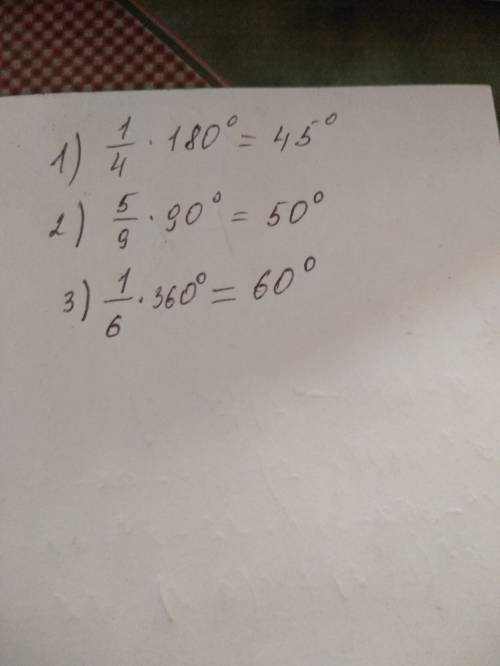 1) 1/4 · 180° = 45°
2) 5/9 · 90° = 50°
3) 1/6 · 360° = 60°